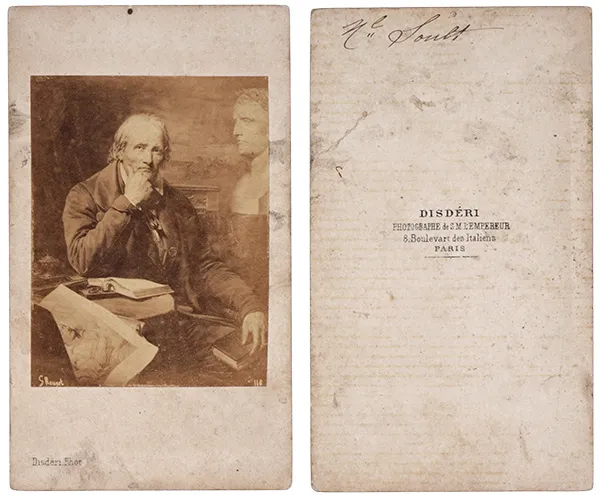 G Rouget
118
Disdéri Phot
Ml Soult
DISDÉRI
PHOTOGRAPHE de S.M. L'EMPEREUR
8, Boulevart des Italiens
PARIS